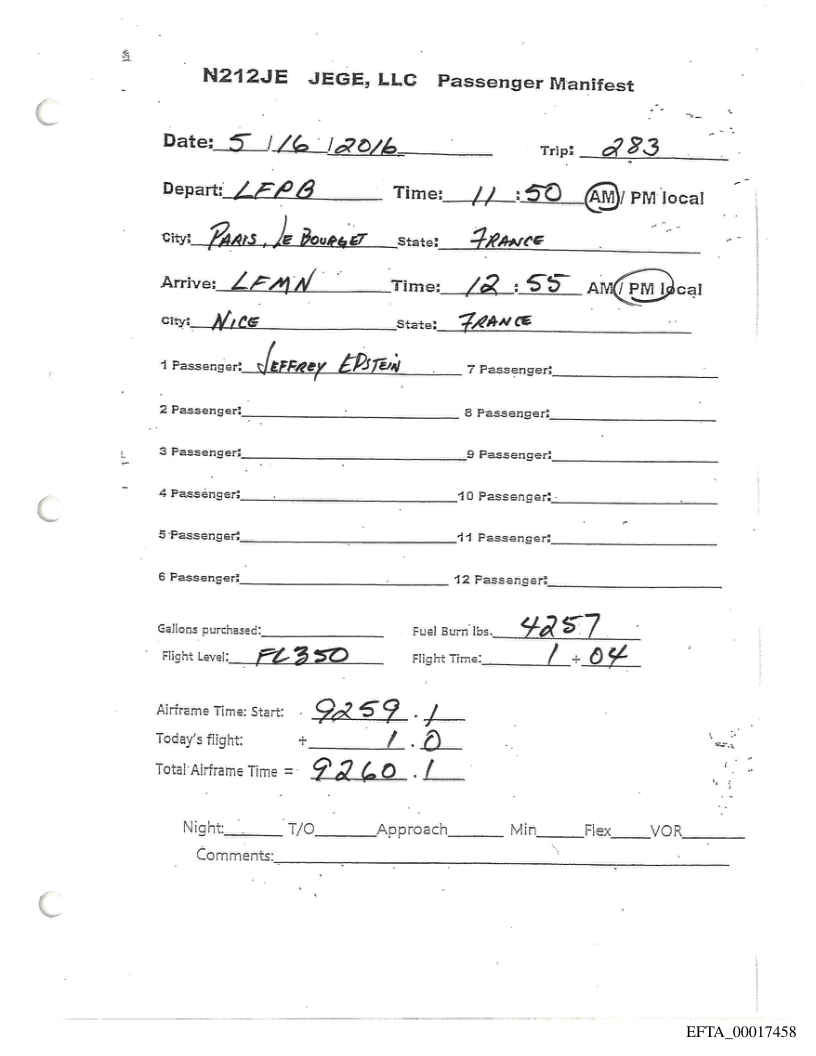 N212JE JEGE, LLC Passenger Manifest
Date: 5 /16 /2016 Trip: 283
Depart: LFPB Time: 11 :50 AM/ PM local
City: PARIS, LE BOURGET State: FRANCE
Arrive: LFMN Time: 12 :55 AM/ PM local
City: NICE State: FRANCE
1 Passenger: JEFFREY EPSTEIN 7 Passenger:
2 Passenger: 8 Passenger:
3 Passenger: 9 Passenger:
4 Passenger: 10 Passenger:
5 Passenger: 11 Passenger:
6 Passenger: 12 Passenger:
Gallons purchased: Fuel Burn lbs. 4257
Flight Level: FL350 Flight Time: 1 + 04
Airframe Time: Start: 9259.1
Today's flight: + 1.0
Total Airframe Time = 9260.1
Night: T/O Approach Min Flex VOR
Comments:
EFTA_00017458